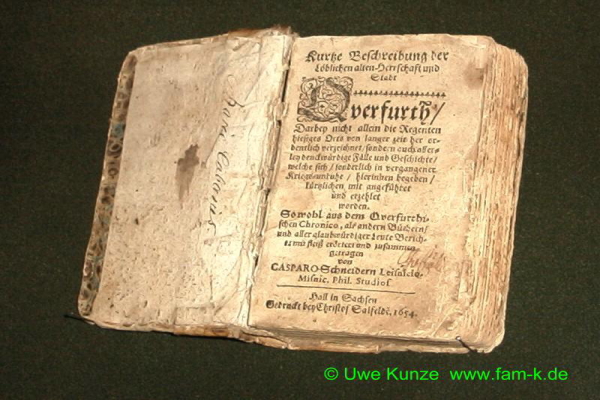 Kurtze Beschreibung der
Löblichen alten Herrschafft und
Stadt
Qverfurth/
Darbey nicht allein die Regenten
hiesiges Orts von langer zeit her or-
dentlich verzeichnet/sondern auch aller-
ley denckwürdige Fälle und Geschichte/
welche sich/sonderlich in vergangener
Kriegs-unruhe/hierinnen begeben/
kürtzlichen mit angeführet
und erzehlet
worden.
Sowohl aus dem Qverfurthi-
schen Chronico, als andern Büchern/
und aller glaubwürdiger Leute Berich-
te mit fleiß erörtert und zusammen
getragen
von
CASPARO Schneidern
Misnic. Phil. Studios.
Hall in Sachsen
Gedruckt bey Christof Salfelde, 1654.
© Uwe Kunze www.fam-k.de